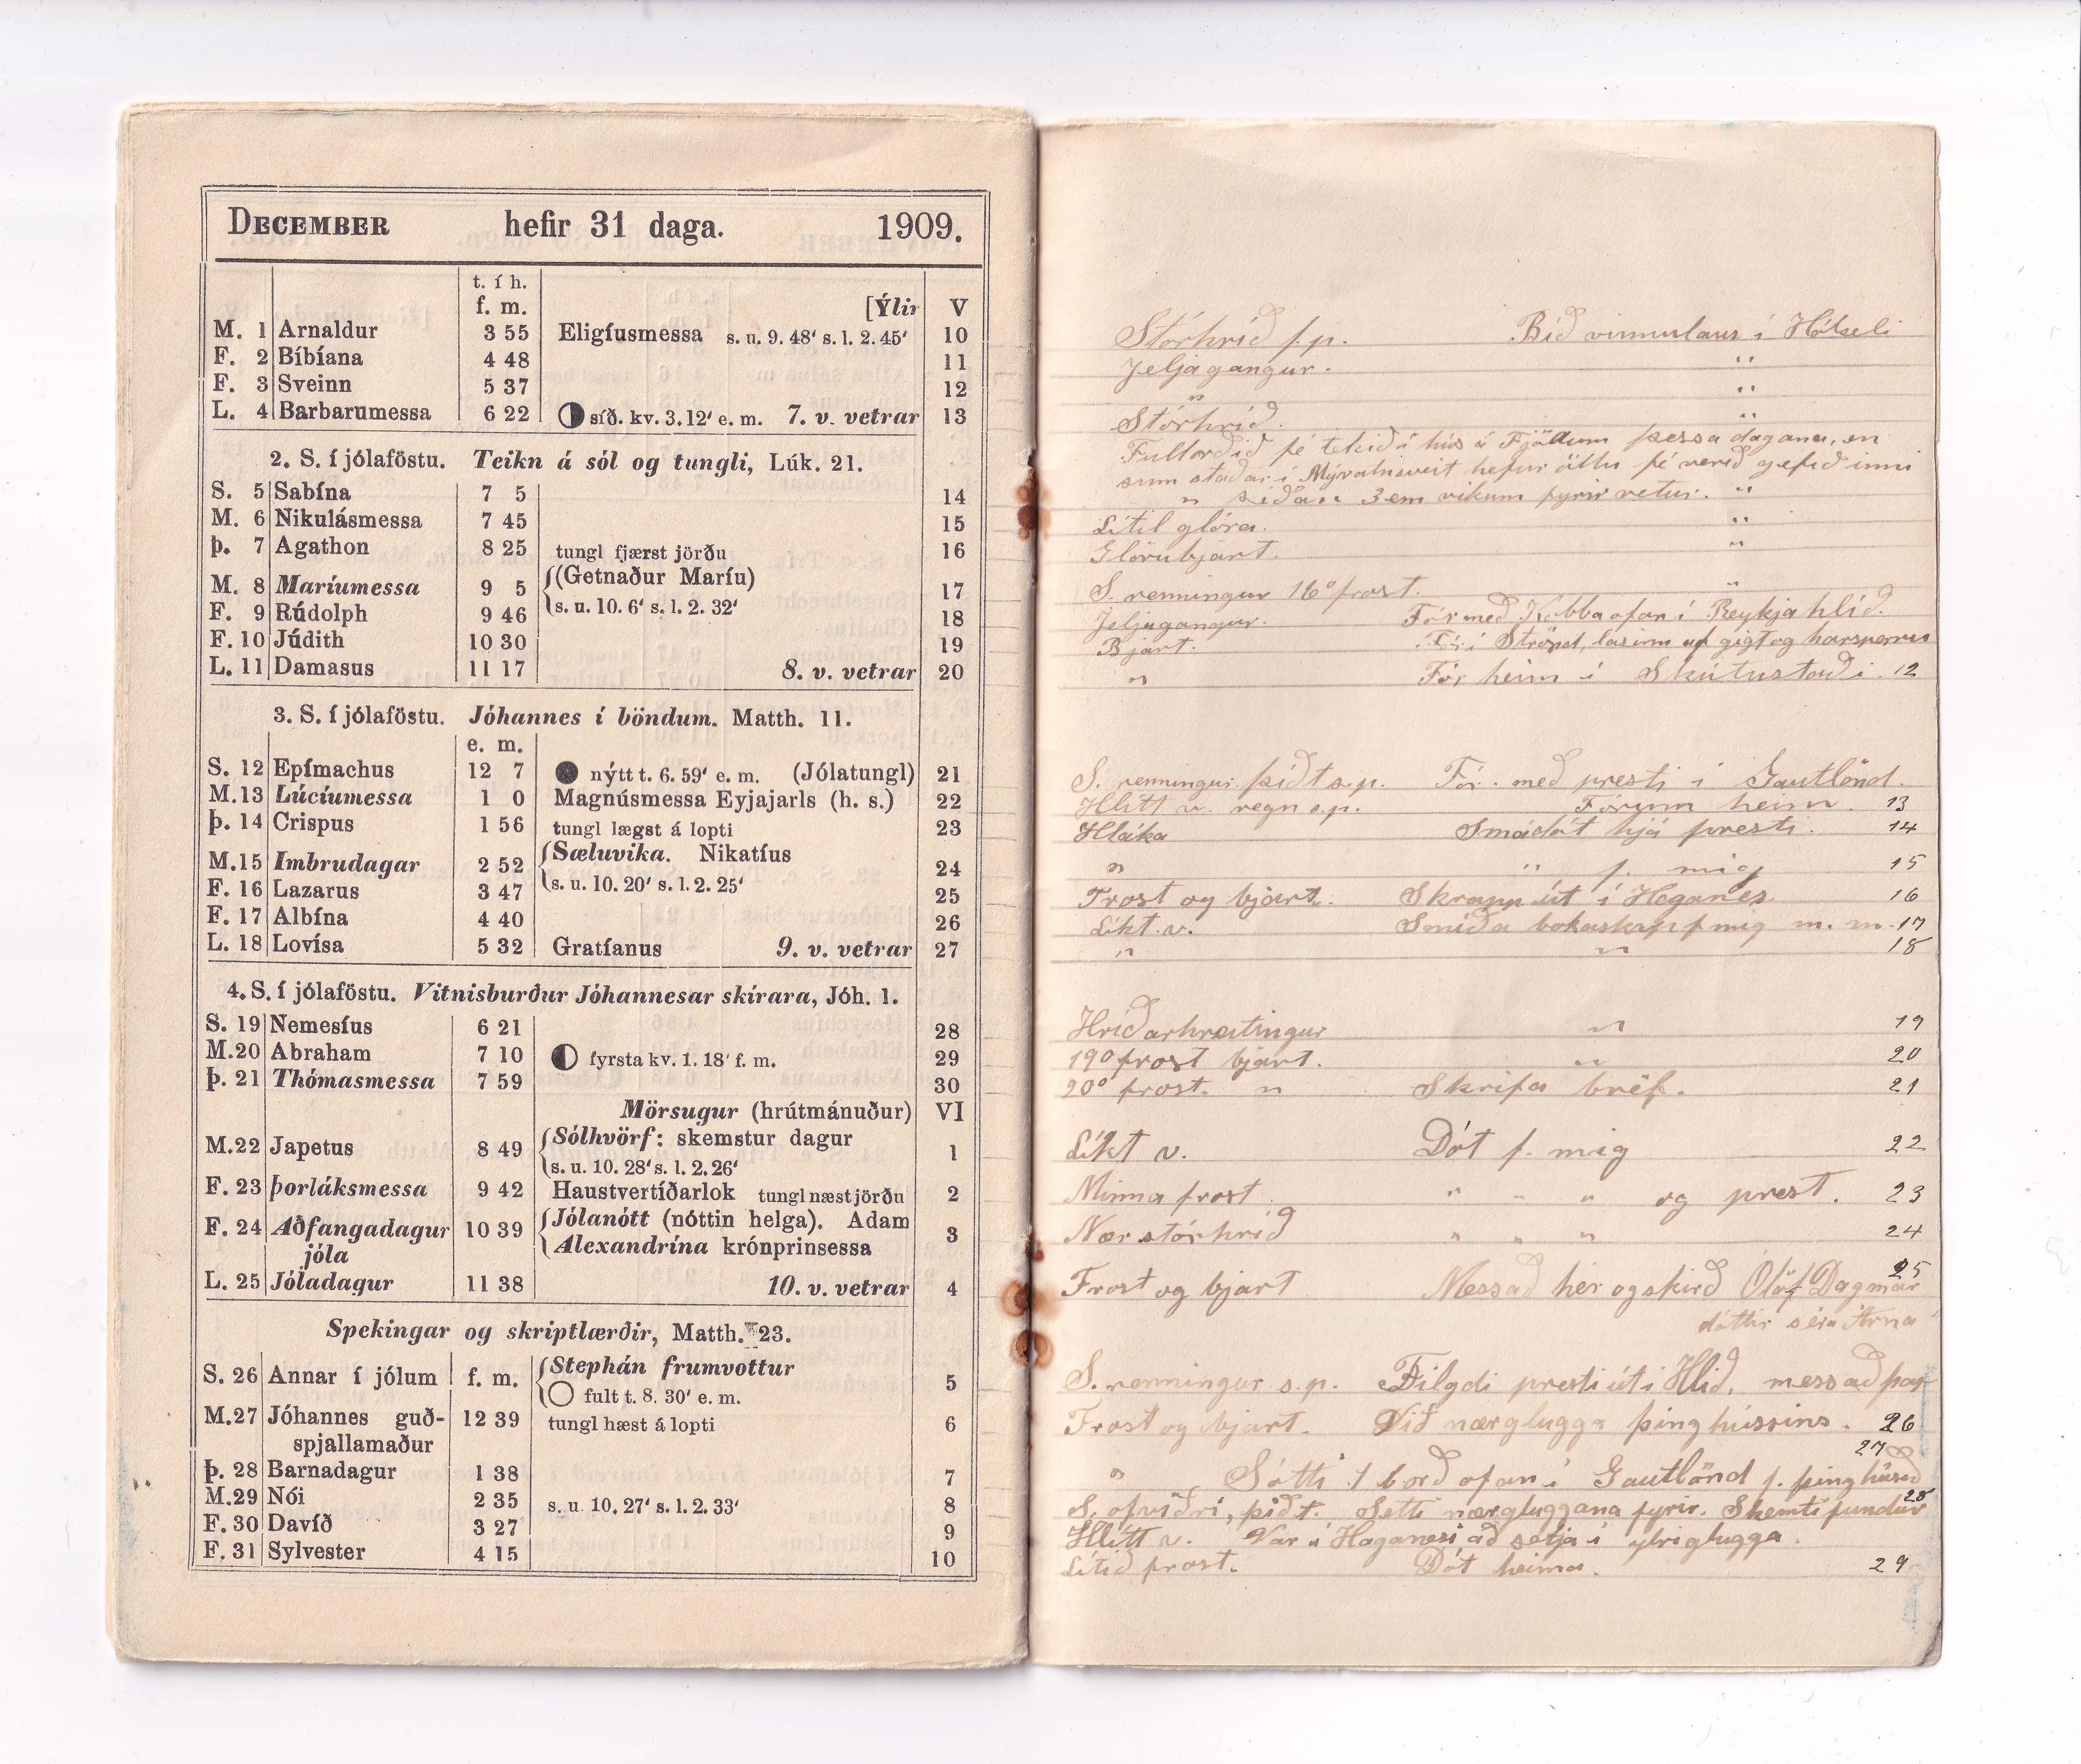 DECEMBER hefir 31 daga. 1909.
t. í h.
f. m. [Ýlir V
M. 1 Arnaldur 3 55 Eligíusmessa s. u. 9. 48' s. l. 2. 45' 10
F. 2 Bíbíana 4 48 11
F. 3 Sveinn 5 37 12
L. 4 Barbarumessa 6 22 síð. kv. 3. 12' e. m. 7. v. vetrar 13
2. S. í jólaföstu. Teikn á sól og tungli, Lúk. 21.
S. 5 Sabína 7 5 14
M. 6 Nikulásmessa 7 45 15
Þ. 7 Agathon 8 25 tungl fjærst jörðu 16
(Getnaður Maríu)
M. 8 Maríumessa 9 5 s. u. 10. 6' s. l. 2. 32' 17
F. 9 Rúdolph 9 46 18
F. 10 Júdith 10 30 19
L. 11 Damasus 11 17 8. v. vetrar 20
3. S. í jólaföstu. Jóhannes í böndum. Matth. 11.
e. m.
S. 12 Epímachus 12 7 nýtt t. 6. 59' e. m. (Jólatungl) 21
M. 13 Lúcíumessa 1 0 Magnúsmessa Eyjajarls (h. s.) 22
Þ. 14 Crispus 1 56 tungl lægst á lopti 23
Sæluvika. Nikatíus
M. 15 Imbrudagar 2 52 s. u. 10. 20' s. l. 2. 25' 24
F. 16 Lazarus 3 47 25
F. 17 Albína 4 40 26
L. 18 Lovísa 5 32 Gratíanus 9. v. vetrar 27
4. S. í jólaföstu. Vitnisburður Jóhannesar skírara, Jóh. 1.
S. 19 Nemesíus 6 21 28
M. 20 Abraham 7 10 fyrsta kv. 1. 18' f. m. 29
Þ. 21 Thómasmessa 7 59 30
Mörsugur (hrútmánuður) VI
Sólhvörf: skemstur dagur
M. 22 Japetus 8 49 s. u. 10. 28' s. l. 2. 26' 1
F. 23 Þorláksmessa 9 42 Haustvertíðarlok tungl næst jörðu 2
Jólanótt (nóttin helga). Adam
F. 24 Aðfangadagur 10 39 3
jóla Alexandrína krónprinsessa
L. 25 Jóladagur 11 38 10. v. vetrar 4
Spekingar og skriptlærðir, Matth. 23.
Stephán frumvottur
S. 26 Annar í jólum f. m. fult t. 8. 30' e. m. 5
M. 27 Jóhannes guð- 12 39 tungl hæst á lopti 6
spjallamaður
Þ. 28 Barnadagur 1 38 7
M. 29 Nói 2 35 s. u. 10. 27' s. l. 2. 33' 8
F. 30 Davíð 3 27 9
F. 31 Sylvester 4 15 10
Stórhríð f.p. Bíð vinnulaus í Hólseli
Jeljagangur. "
" "
Stórhríð. "
Fullorðið fé tekið í hús á Fjöllum þessa dagana, en
sumstaðar í Mývatnsveit hefur öllu fé verið gefið inni
" síðan 3em vikum fyrir vetur. "
Lítil glóra. "
Glórubjart. "
S. renningur 16° frost. "
Jeljagangur. Fór með Kobba ofan í Reykjahlíð.
Bjart. Fór í Strönd, lasinn af gigt og harsperrus
" Fór heim í Skútustaði. 12
S. renningur þíðt s.p. Fór með presti í Gautlönd.
Hlítt v. regn s.p. Fórum heim. 13
Hláka Smádót hjá presti. 14
" " f. mig 15
Frost og bjart. Skrapp út í Haganes. 16
Líkt v. Smíða bokaskáp f mig m. m. 17
" " 18
Hríðarhreitingur " 19
19° frost bjart. " 20
20° frost. " Skrifa bréf. 21
Líkt v. Dót f. mig 22
Minna frost " " " og prest. 23
Nær stórhríð " " " 24
Frost og bjart Messað hér og skírð Ólöf Dagmar 25
dóttir séra Árna
S. renningur s.p. Filgdi presti út í Hlíð, messað þar
Frost og bjart. Við nærglugga þinghússins. 26
27
" Sótti 1 borð ofan í Gautlönd f. þinghúsið
S. ofviðri, þíðt. Setti nærgluggana fyrir. Skemtifundur 28
Hlítt v. Var í Haganesi að setja í ytriglugga.
Lítið frost. Dót heima. 29